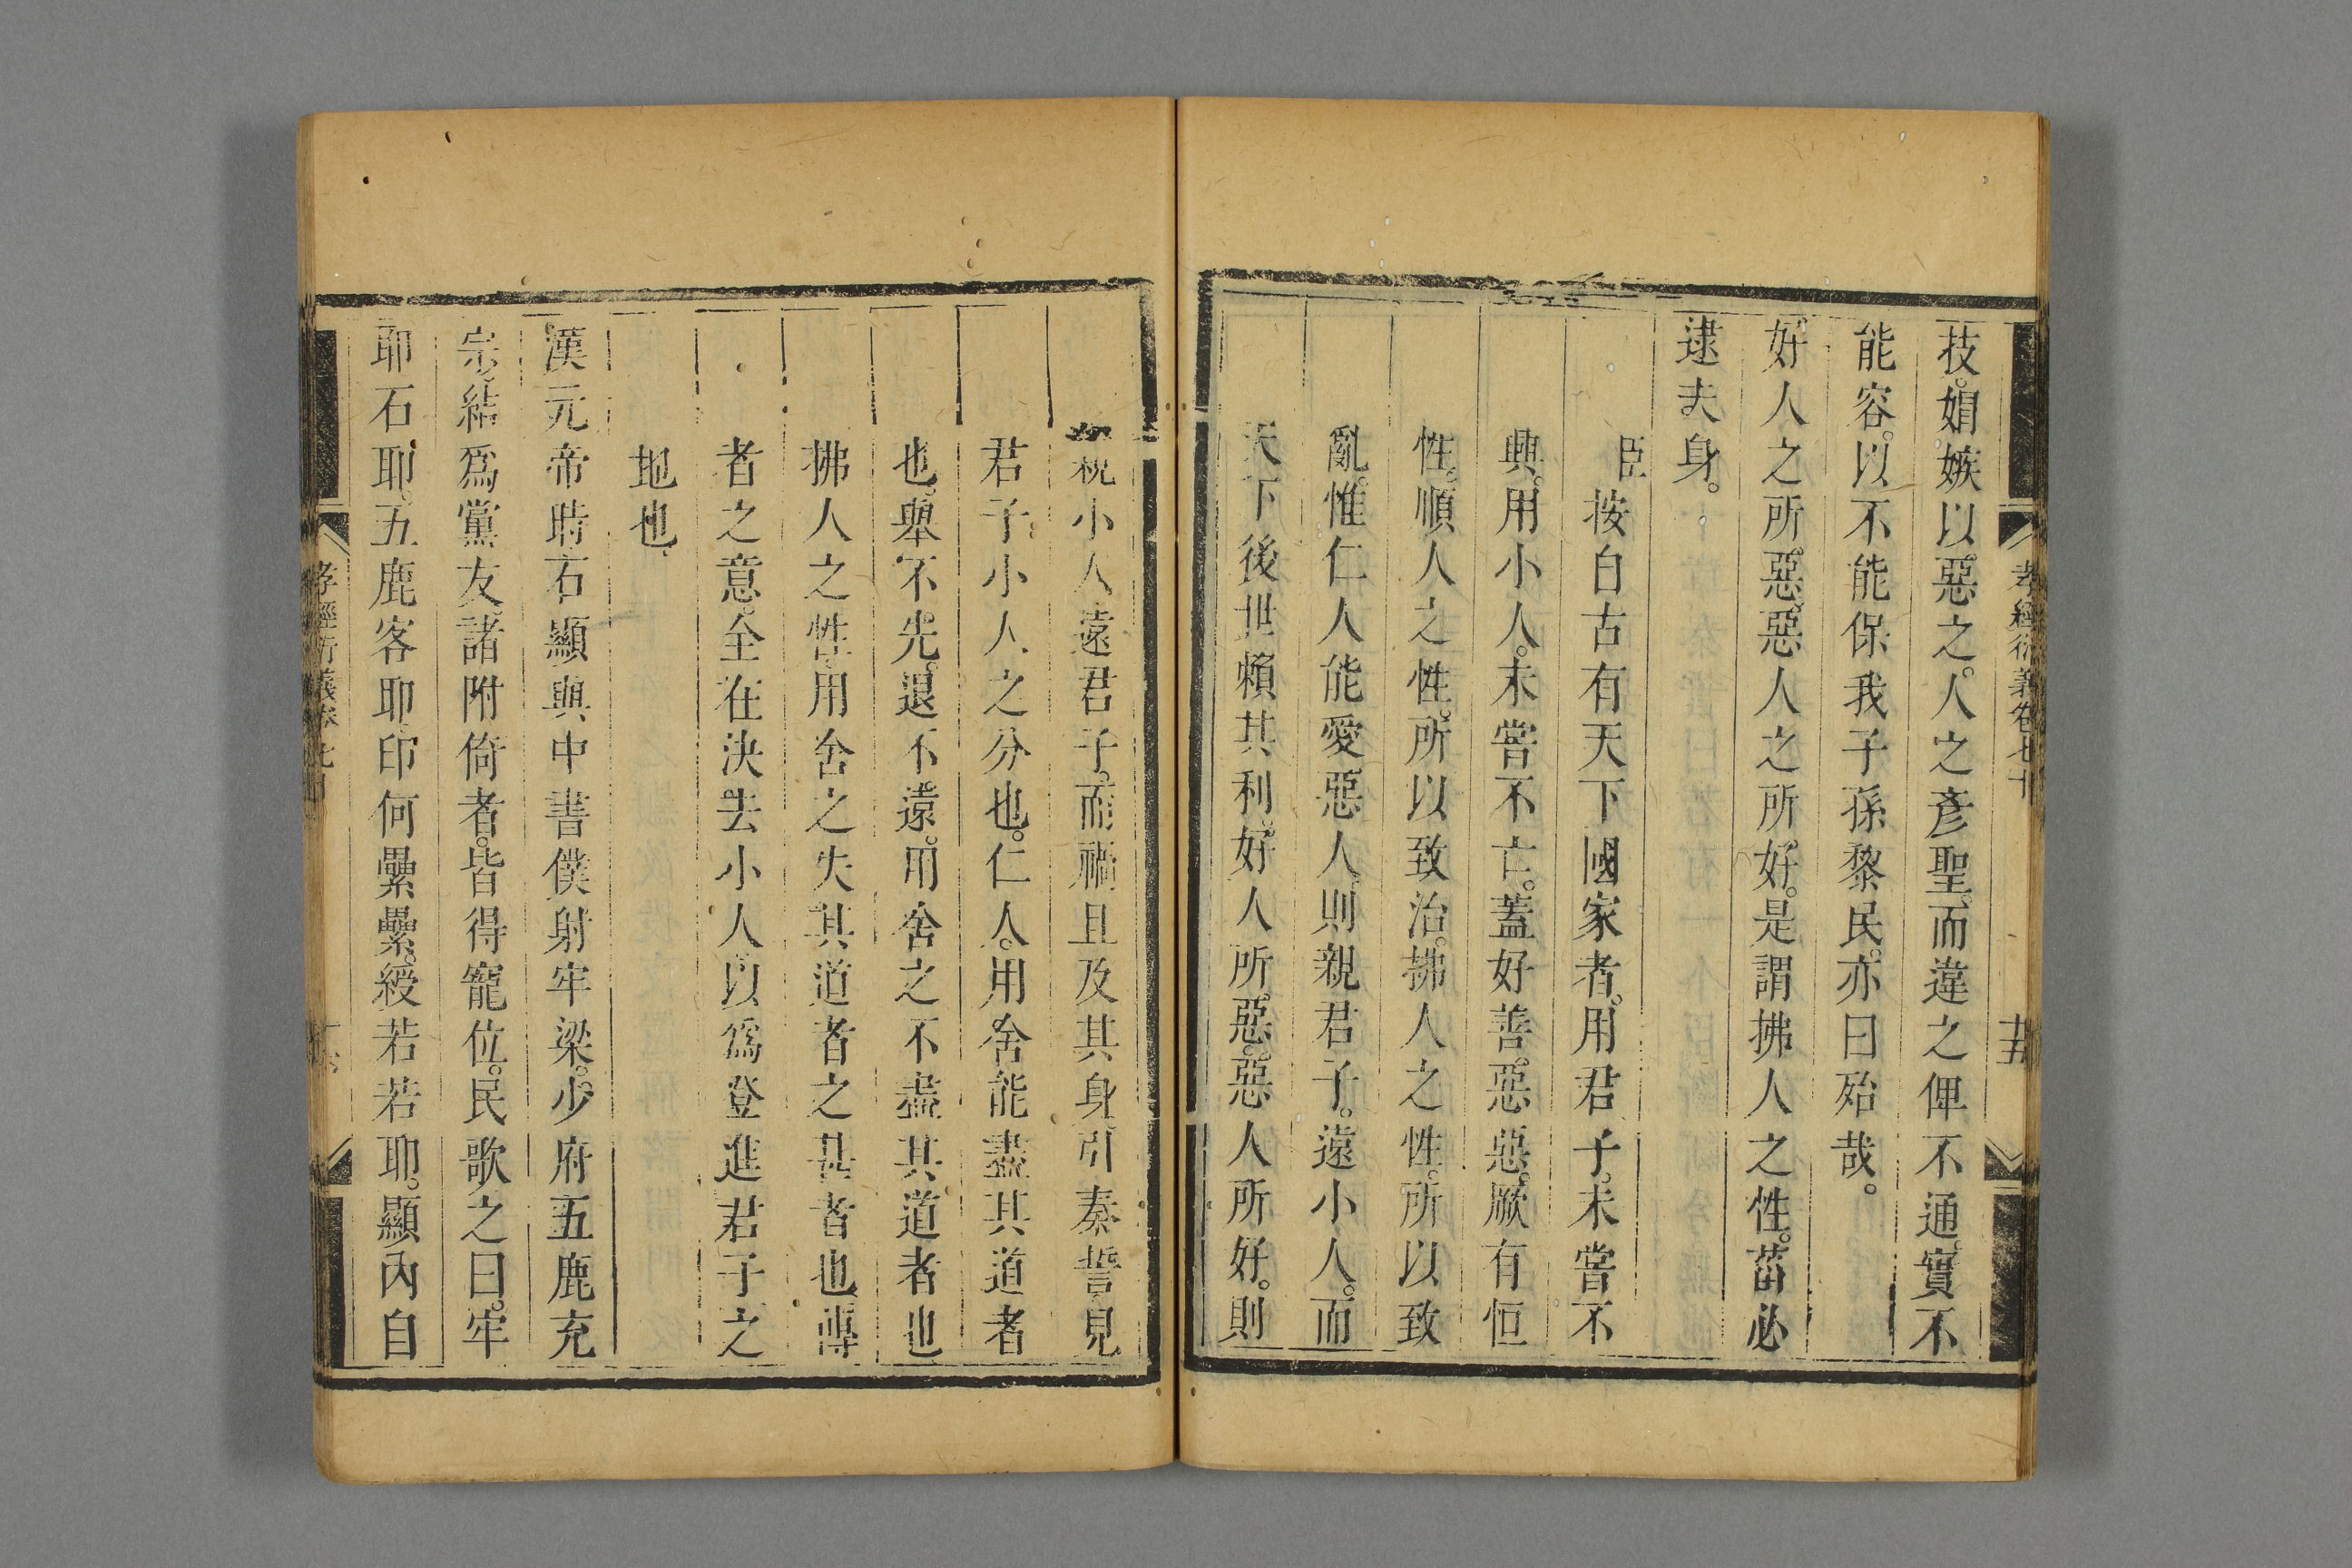 孝經衍義卷七十
十五
技。媢嫉以惡之。人之彥聖。而違之俾不通。實不
能容。以不能保我子孫黎民。亦曰殆哉。
好人之所惡。惡人之所好。是謂拂人之性。菑必
逮夫身。
臣按自古有天下國家者。用君子。未嘗不
興。用小人。未嘗不亡。蓋好善。惡惡。厥有恒
性。順人之性。所以致治。拂人之性。所以致
亂。惟仁人能愛惡人。則親君子。遠小人。而
天下後世賴其利。好人所惡。惡人所好。則
親小人遠君子。而禍且及其身引秦誓見
君子小人之分也。仁人。用舍能盡其道者
也。舉不先。退不遠。用舍之不盡其道者也
拂人之性用舍之失其道者之甚者也傳
者之意。全在決去小人。以爲登進君子之
地也
漢元帝時石顯與中書僕射牢梁。少府五鹿充
宗結爲黨友。諸附倚者。皆得寵位。民歌之曰。牢
耶石耶。五鹿客耶印何纍纍。綬若若耶。顯內自